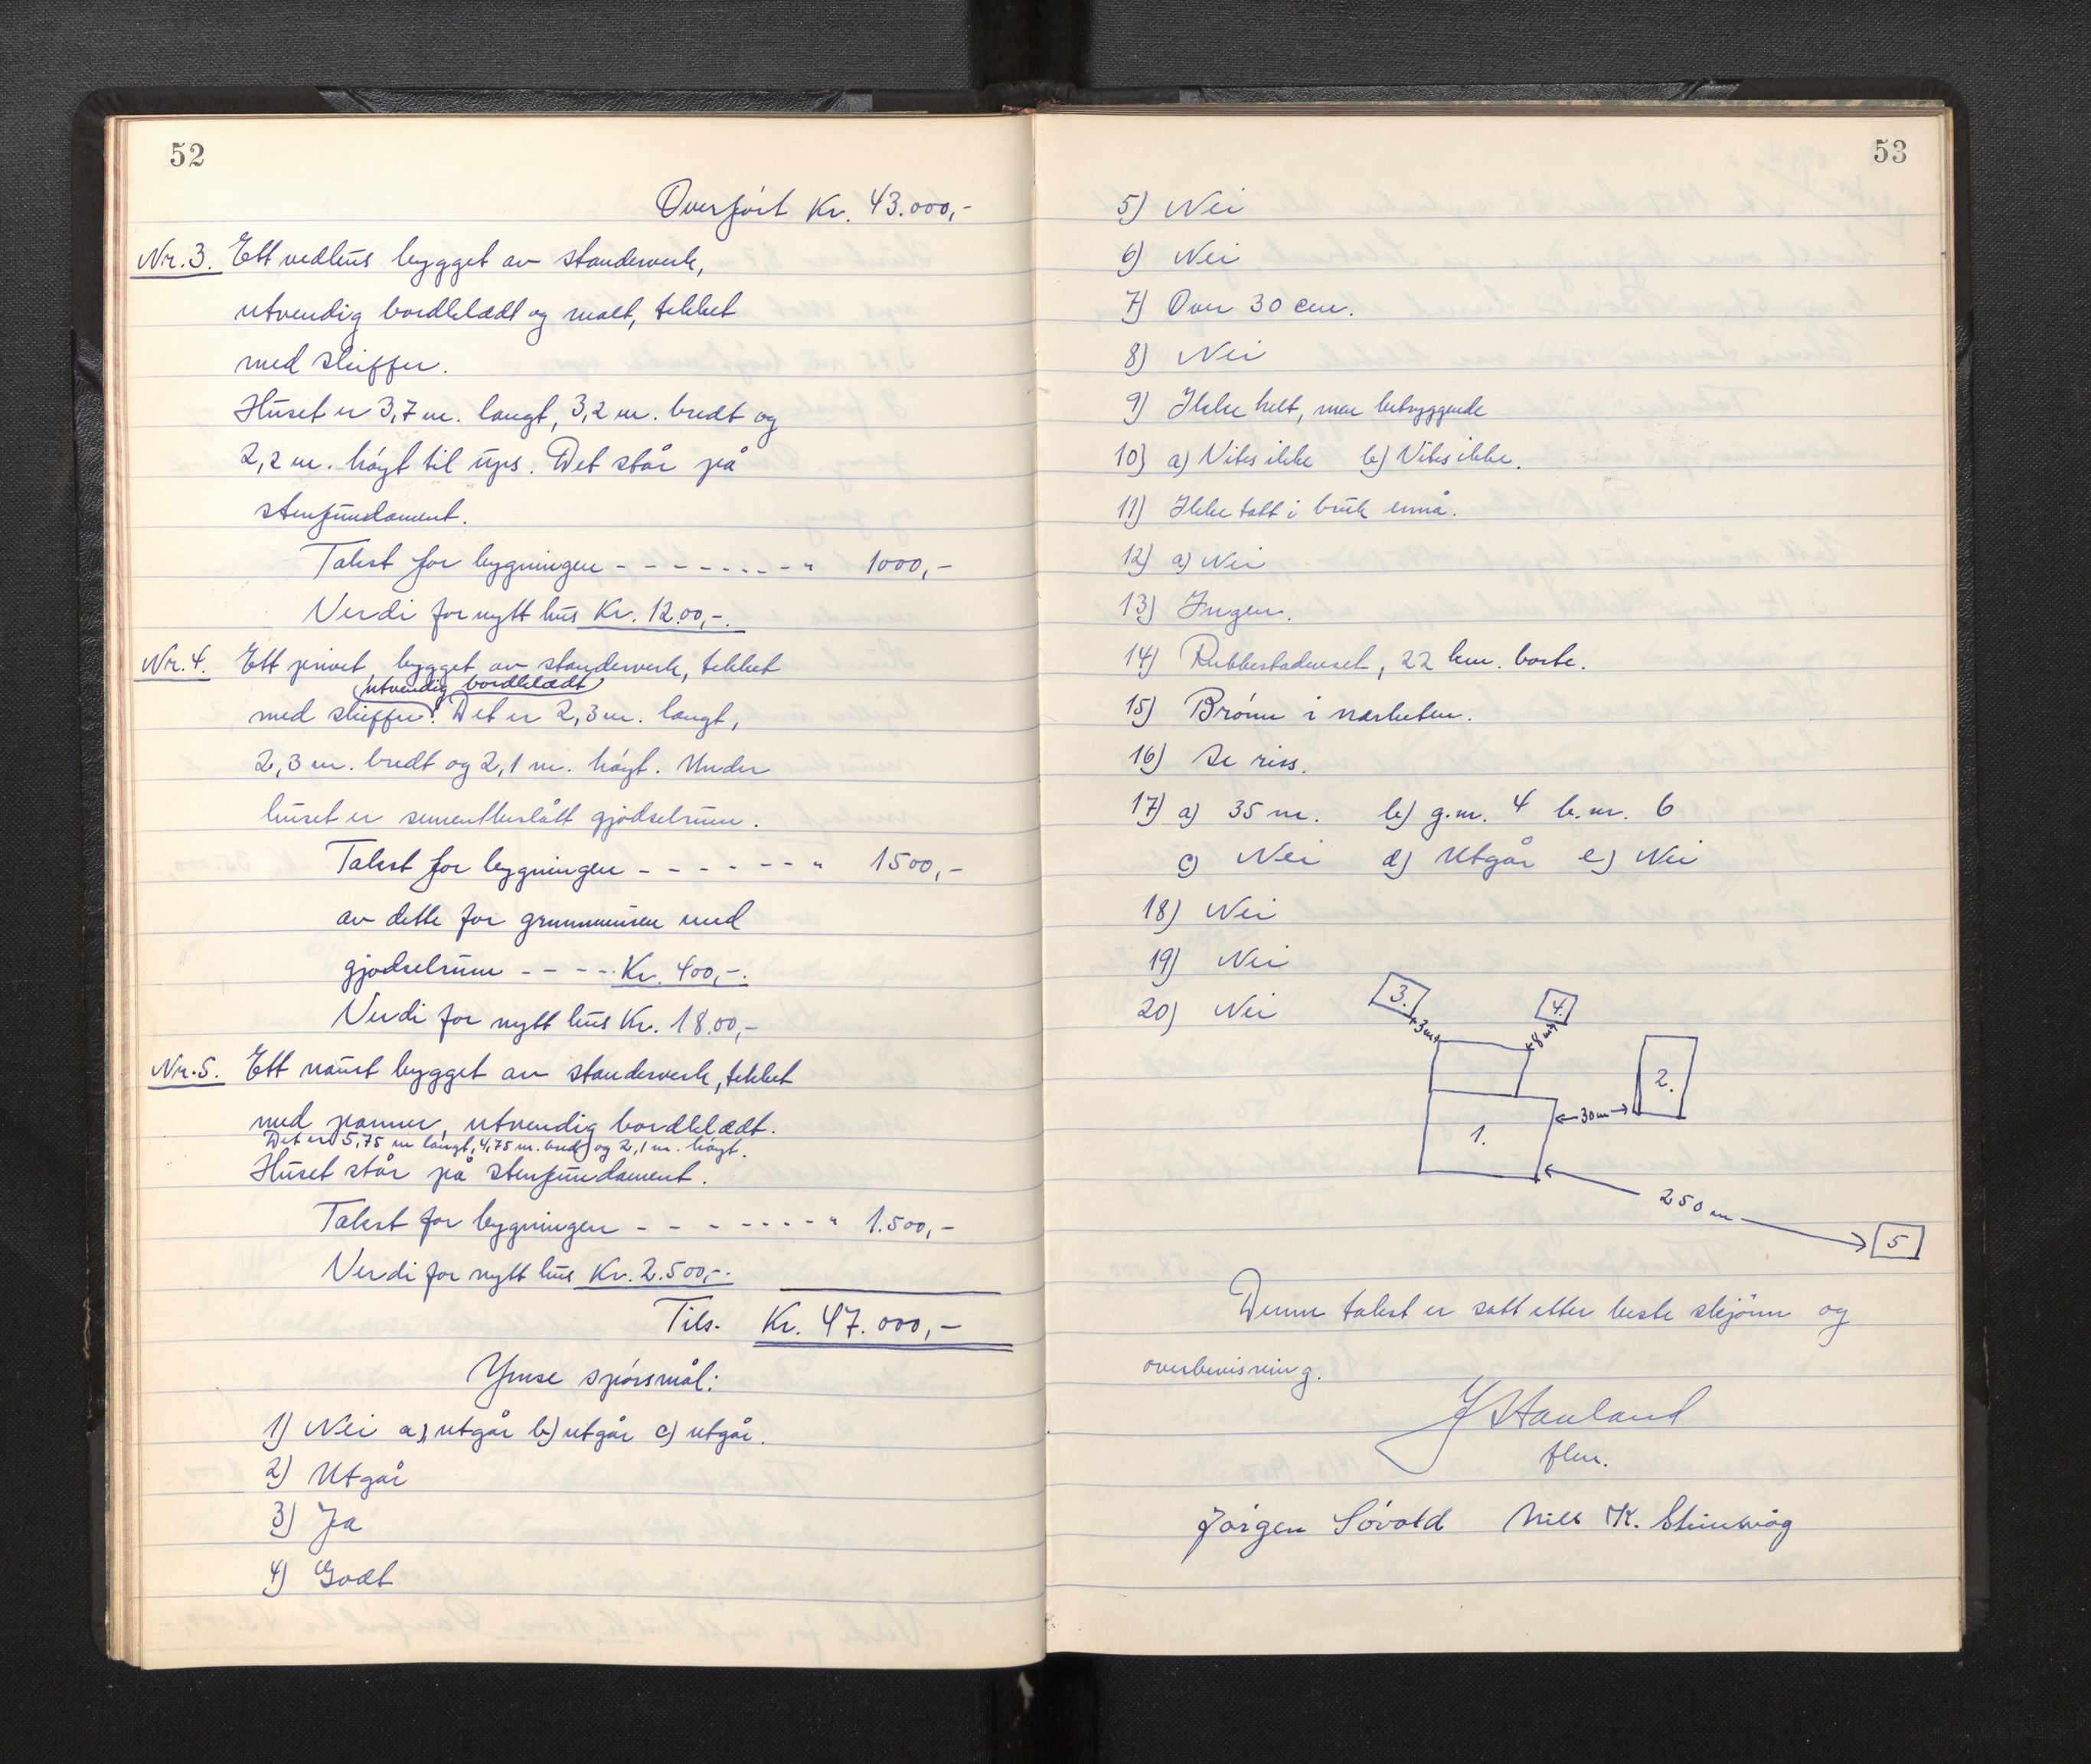 52
Overført Kr. 43.000,-
Nr. 3. Ett vedhus bygget av standerverk,
utvendig bordklædt og malt, tekket
med skiffer.
Huset er 3,7 m. langt, 3,2 m. bredt og
2,2 m. høyt til ups. Det står på
stenfundament.
Takst for bygningen - - - - - - - - - " 1000,-
Verdi for nytt hus Kr. 12.00,-.
Nr. 4. Ett privet bygget av standerverk, tekket
utvendig bordklædt
med skiffer. Det er 2,3 m. langt,
2,3 m. bredt og 2,1 m. høyt. Under
huset er sementberslått gjødselrum.
Takst for bygningen - - - - - - - " 1500,-
av dette for grunnmuren med
gjødselrum - - - - - Kr. 400,-.
Verdi for nytt hus Kr. 18.00,-
Nr. 5. Ett naust bygget av standerverk, tekket
med panner, utvendig bordklædt.
Det er 5,75 m langt, 4,75 m. bredt og 2,1 m. høyt.
Huset står på stenfundament.
Takst for bygningen - - - - - - - - " 1.500,-
Verdi for nytt hus Kr. 2.500,-.
Tils. Kr. 47.000,-
Ymse spørsmål:
1) Nei a) utgår b) utgår c) utgår.
2) Utgår
3) Ja
4) Godt
53
5) Nei
6) Nei
7) Over 30 cm.
8) Nei
9) Ikke helt, men betryggende
10) a) Vites ikke b) Vites ikke.
11) Ikke tatt i bruk ennå.
12) a) Nei
13) Ingen.
14) Rubbestadneset, 22 km. borte.
15) Brønn i nærheten.
16) Se riss.
17) a) 35 m. b) g.nr. 4 b.nr. 6
c) Nei d) Utgår e) Nei
18) Nei
19) Nei
20) Nei
3.
4.
3m
8m
2.
30m
1.
250 m
5
Denne takst er satt etter beste skjønn og
overbevisning.
J Hauland
flm.
Jørgen Søvold Nils K. Steinsvåg